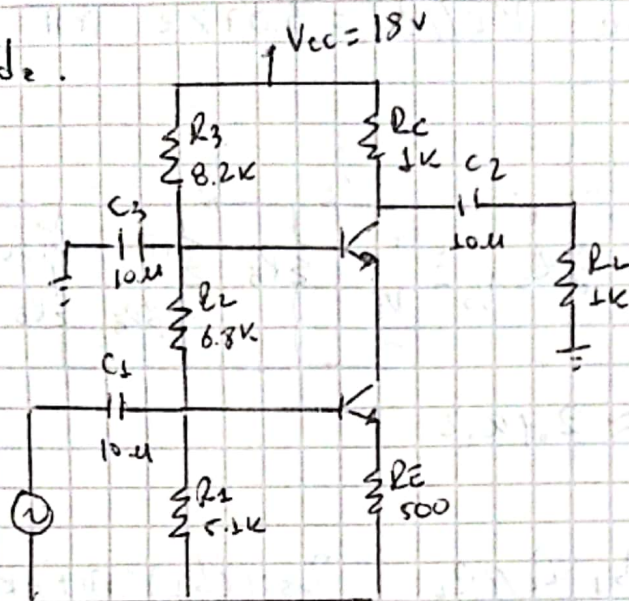 de.
Vcc = 18v
R3
8.2K
RC
1K
C2
10µ
C3
10µ
RL
1K
R2
6.8K
C1
10µ
R1
5.1K
RE
500